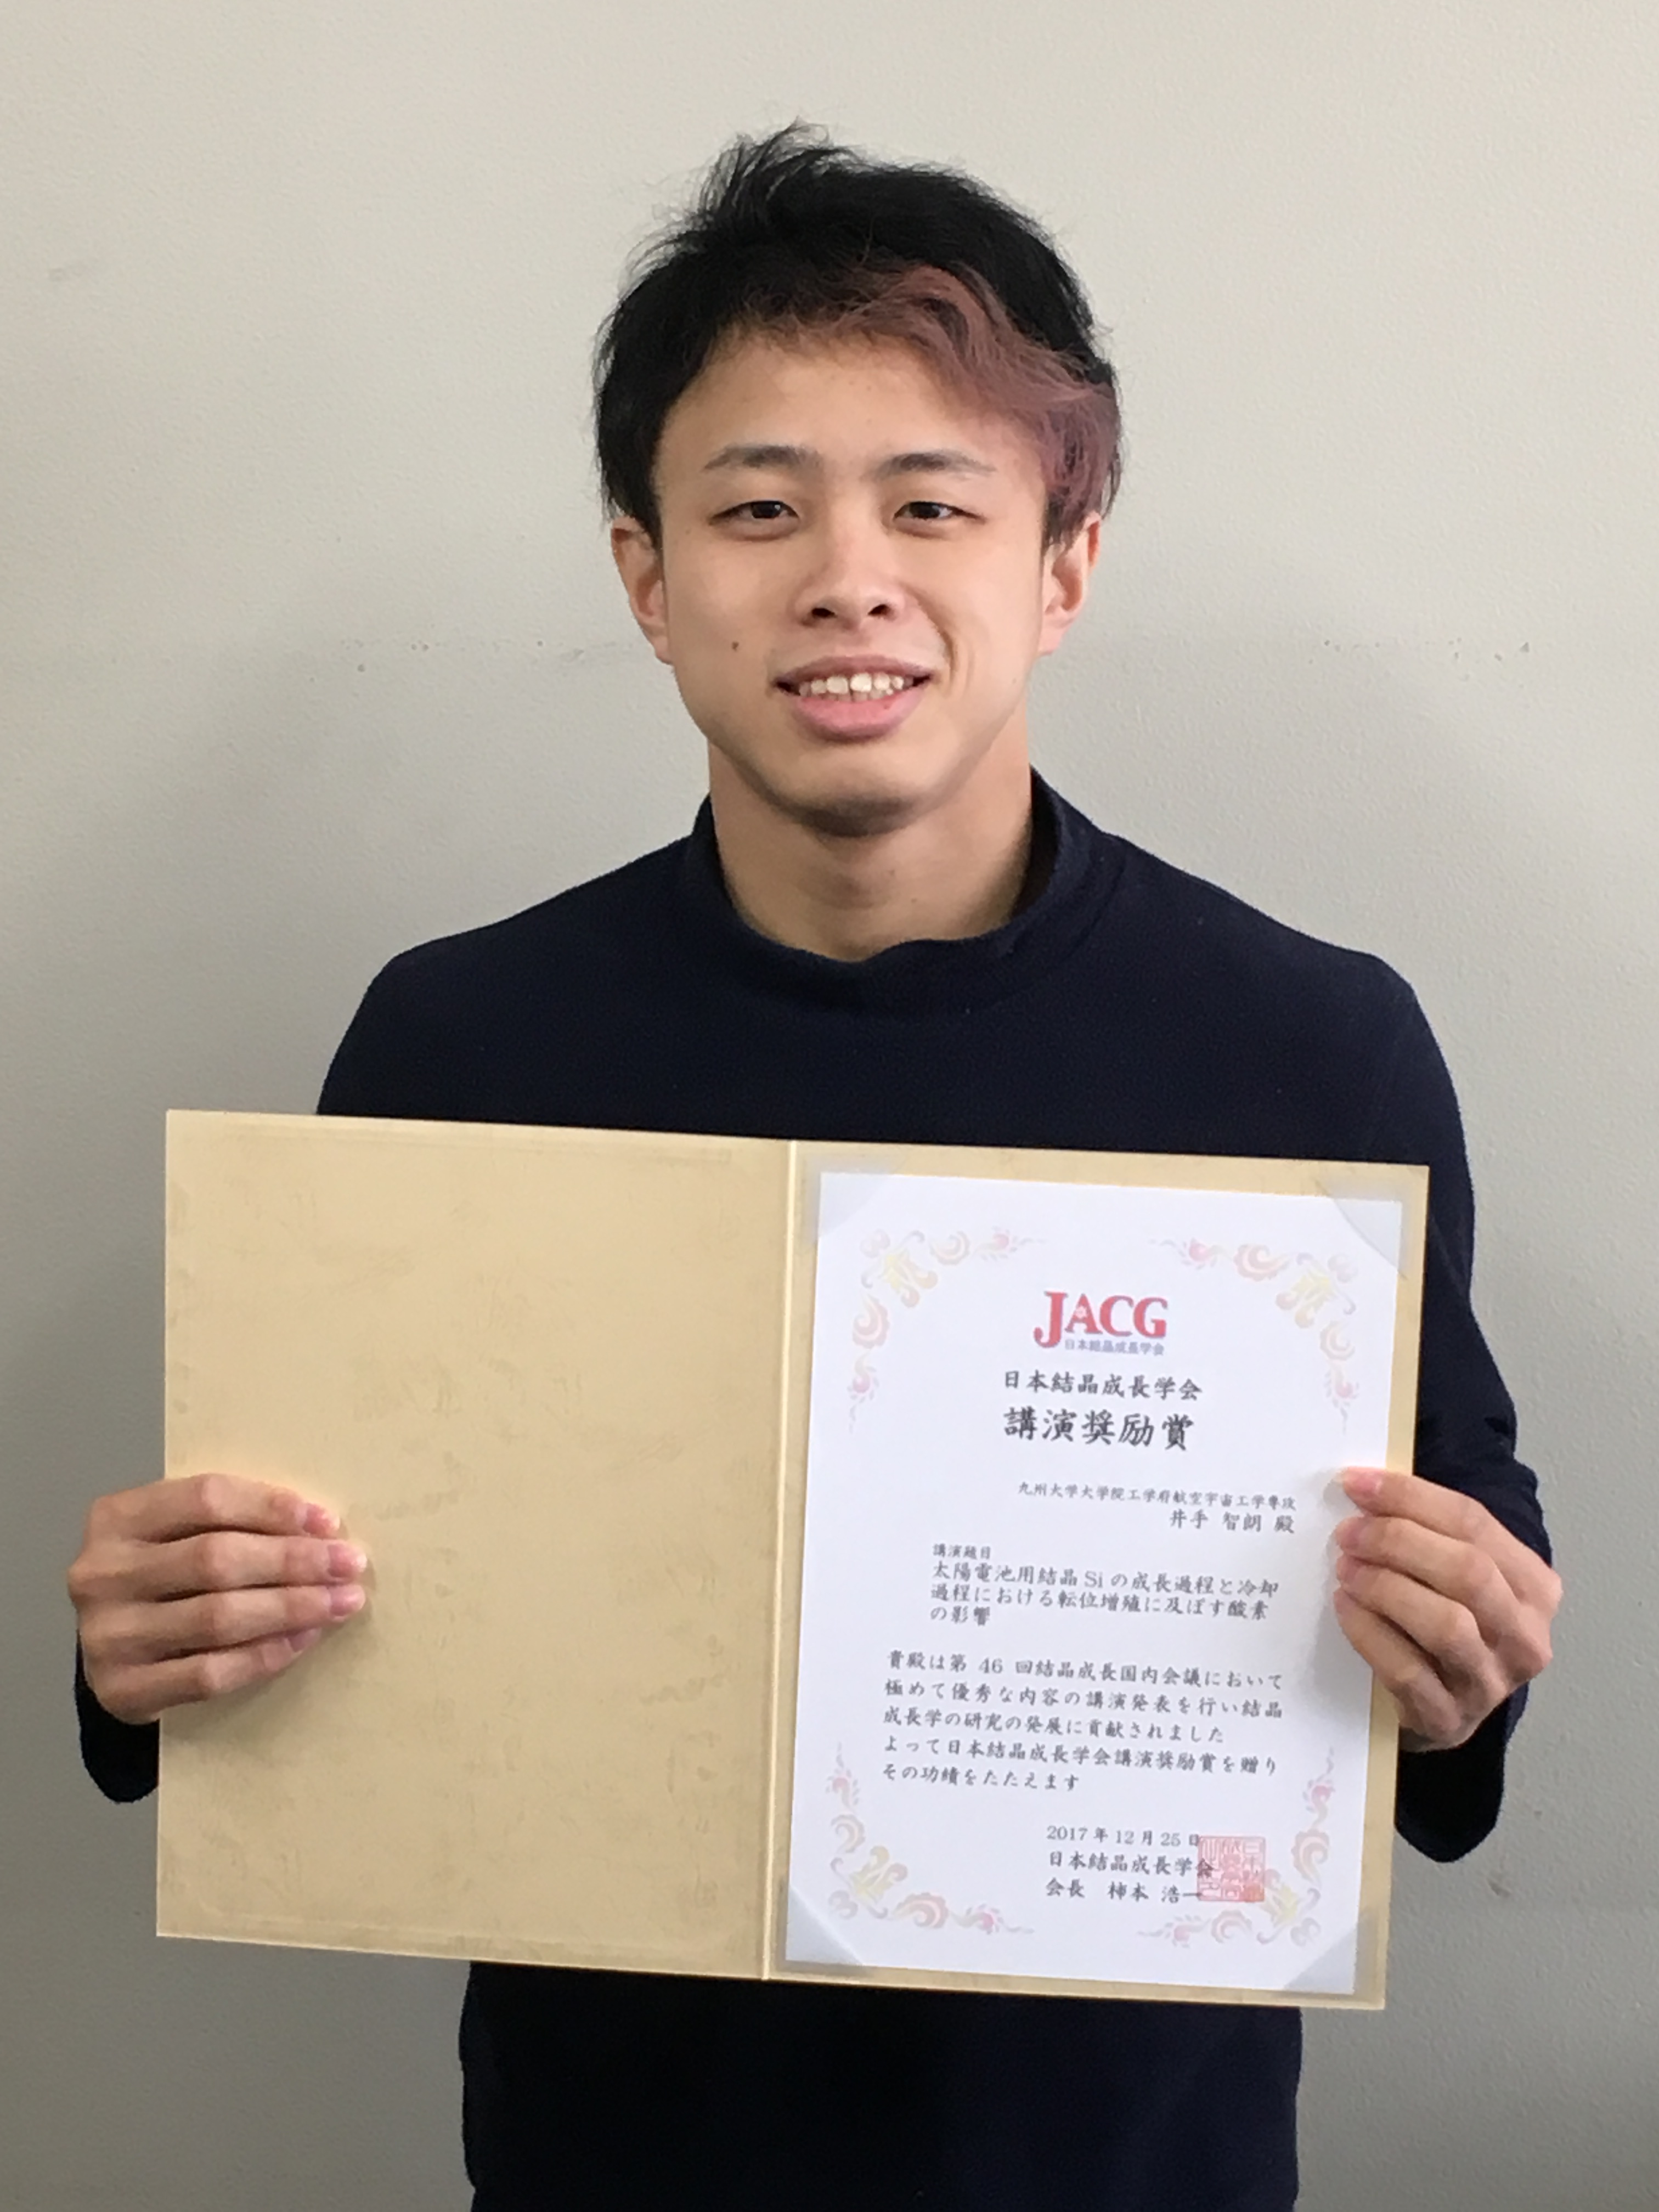 JACG
日本結晶成長学会
日本結晶成長学会
講演奨励賞
九州大学大学院工学府航空宇宙工学専攻
井手 智朗 殿
講演題目
太陽電池用結晶 Si の成長過程と冷却
過程における転位増殖に及ぼす酸素
の影響
貴殿は第 46 回結晶成長国内会議において
極めて優秀な内容の講演発表を行い結晶
成長学の研究の発展に貢献されました
よって日本結晶成長学会講演奨励賞を贈り
その功績をたたえます
2017 年 12 月 25 日
日本結晶成長学会
会長 柿本 浩一